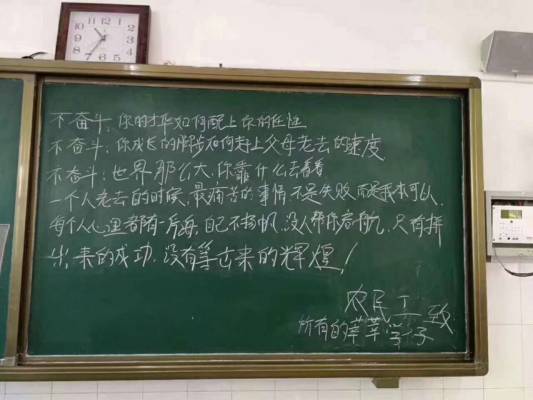 不奋斗:你的才华如何配上你的任性
不奋斗:你成长的脚步如何赶上父母老去的速度
不奋斗:世界那么大,你靠什么去看看
一个人老去的时候,最痛苦的事情不是失败,而是我本可以,
每个人心里都有一片海,自己不扬帆,没人帮你启航,只有拼
出来的成功,没有等出来的辉煌!
农民工致
所有的莘莘学子